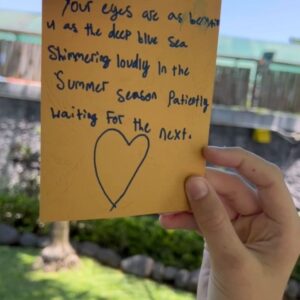 Your eyes are as
u as the deep blue sea
Shimmering loudly In the
Summer Season Patiently
waiting For the next.